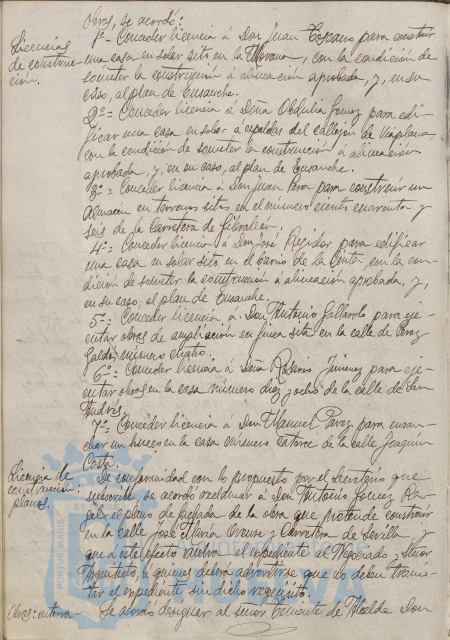 obras, se acordó:
Licencias
de construc-
ción.
1º= Conceder licencia á Don Juan Toscano para construir
una casa en solar sito en la Morana, con la condición de
someter la construcción á alineación aprobada, y, en su
caso, al plan de Ensanche.
2º= Conceder licencia á Doña Obdulia Gomez para edi-
ficar una casa en solar á espaldas del callejón de
con la condición de someter la construcción á alineación
aprobada, y, en su caso, al plan de Ensanche.
3º= Conceder licencia á Don Juan para construir un
Almacén en terrenos sitos en el número ciento cuarenta y
seis de la Carretera de Gibraleon.
4º= Conceder licencia á Don José Regidor para edificar
una casa en solar sito en el barrio de la Cinta con la con-
dición de someter la construcción á alineación aprobada, y,
en su caso, al plan de Ensanche.
5º= Conceder licencia á Don Antonio Gallardo para eje-
cutar obras de ampliación en finca sita en la calle de Perez
Galdós número cuatro.
6º= Conceder licencia á Doña Rosario Jimenez para eje-
cutar obras en la casa número diez y ocho de la calle de San
Andres.
7º= Conceder licencia á Don Manuel Perez para ensan-
char un hueco en la casa número catorce de la calle Joaquin
Costa.
Licencia de
construcción:
planos.
De conformidad con lo propuesto por el Secretario que
suscribe, se acordó reclamar á Don Antonio Gomez Ra-
el plano de fachada de la obra que pretende construir
en la calle José María Orense y Carretera de Sevilla y
que a este efecto vuelva el expediente al Negociado y Señor
Arquitecto, a quienes deberá advertirse que no deben trami-
tar el expediente sin dicho requisito.
Obras:
Se acordó designar al señor Teniente de Alcalde Don
PORTUS MARIS